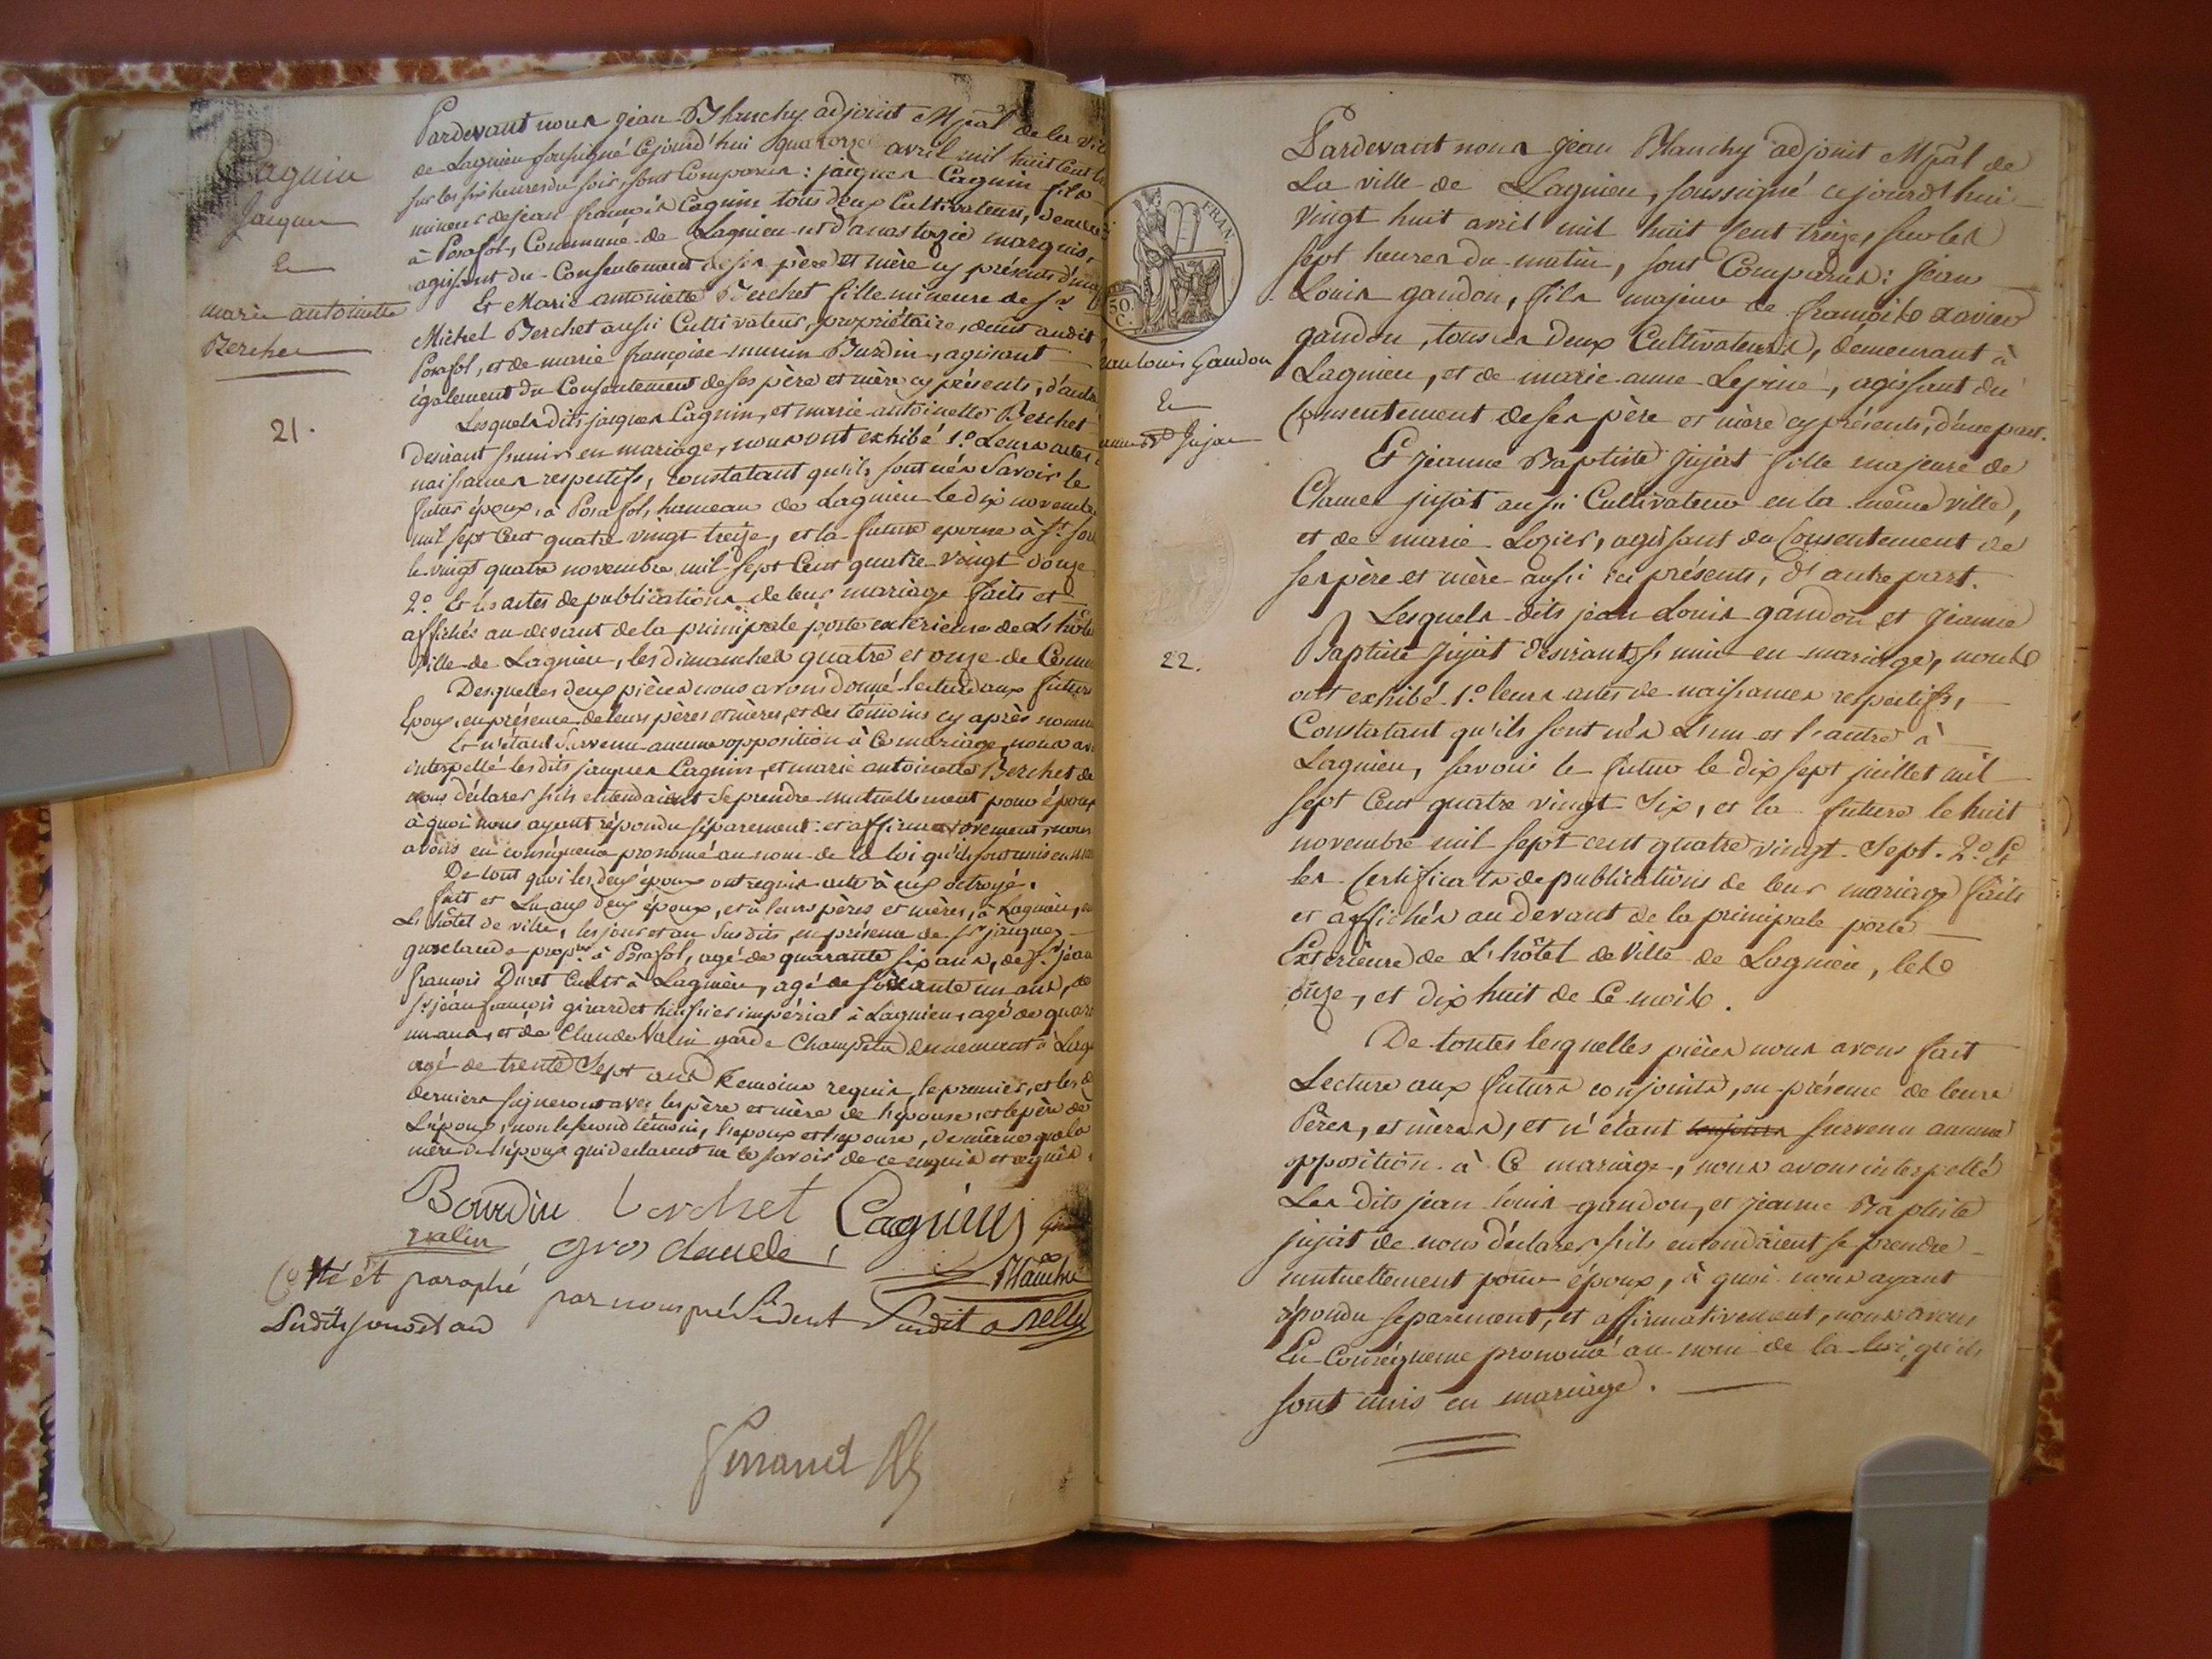 Cagnin
Jacques
Et
marie antoinette
Berchet
21.
Pardevant nous jean Blanchy adjoint Mpâl de la vil
de Lagnieu soussigné Cejourd'hui quatorze avril mil huit Cent
sur les six heures du soir, sont Comparus : jacques Cagnin fils
mineur de jean françois Cagnin tous deux Cultivateurs, demeu
à Posafol, Commune de Lagnieu et d'anastazie marquis,
agissant du Consentement de ses père et mère cy présents d'une
Et Marie antoinette Berchet fille mineure de Sr
Michel Berchet aussi Cultivateur, propriétaire, demt audit
Posafol, et de marie françoise Burdin, agissant
également du Consentement de ses père et mère cy présents, d'autre
Lesquels dits jacques Cagnin, et marie antoinette Berchet
desirant s'unir en mariage, nous ont exhibé 1.º Leurs actes
naissances respectifs, constatant qu'ils sont nés Savoir le
futur époux, à Posafol, hameau de Lagnieu le dix novembre
mil sept Cent quatre vingt treize, et la future epouse à St. sor
le vingt quatre novembre mil sept Cent quatre vingt douze
2.º Et les actes de publications de leur mariage faits et
affichés au devant de la principale porte extérieure de L'hôtel
Ville de Lagnieu, les dimanches quatre et onze de Ce mois
Desquelles deux pièces nous avons donné lecture aux futurs
Epoux, en présence de leurs pères et mères, et des témoins cy après nommés
Et n'étant Survenu aucune opposition à Ce mariage, nous av
interpellé les dits jacques Cagnin, et marie antoinette Berchet de
nous déclarer s'ils entendaient se prendre mutuellement pour époux
à quoi nous ayant répondu séparement et affirmativement, nous
avons en conséquence prononcé au nom de la loi qu'ils sont unis en
De tout quoi les deux époux ont requis acte à eux octroyé.
fait et Lu aux deux époux, et à leurs pères et mères, à Lagnieu, en
L'hôtel de ville, les jour et an Susdits, en présence de Sr jacques
grosclaude propre. à Posafol, agé de quarante six ans, de Sr. jean
françois Duret Cultr à Lagnieu, agé de soixante un ans, de
Sr jean françois girardet huissier impérial à Lagnieu, agé de quar
un ans, et de Claude Valin garde Champêtre demeurant à Lag
agé de trente Sept ans Temoins requis, le premier, et les d
derniers signeront avec les père et mère de l'epouse, et le père de
L'époux, non le second témoin, l'epoux et l'epouse, de même que la
mère de l'époux qui declarent ne le savoir de ce enquis et requis.
Bourdin berchet Cagnin
valin gros claude Blanchy
Cotté et paraphé par nous président Susdit
Susdits jour et an
FRAN.
50
C.
jean Louis Gaudon
Et
22.
Pardevant nous jean Blanchy adjoint Mpâl de
La ville de Lagnieu, soussigné cejourd'hui
vingt huit avril mil huit Cent treize, sur les
sept heures du matin, sont Comparus : jean
Louis gaudon, fils majeur de françois xavier
gaudon, tous les deux Cultivateurs, demeurant à
Lagnieu, et de marie anne Lepine, agissant du
Consentement de ses père et mère cy présents, d'une part.
Et jeanne Baptiste jujat fille majeure de
Clame jujat aussi Cultivateur en la même ville,
et de marie Lozier, agissant du Consentement de
ses père et mère aussi ici présents, d'autre part.
Lesquels dits jean Louis gaudon et jeanne
Baptiste jujat desirants s'unir en mariage, nous
ont exhibé 1.º leurs actes de naissances respectifs,
Constatant qu'ils sont nés L'un et l'autre à
Lagnieu, savoir le futur le dix sept juillet mil
sept Cent quatre vingt Six, et la future le huit
novembre mil sept cent quatre vingt Sept. 2.º Et
les Certificats de publications de leur mariage faits
et affichés au devant de la principale porte
Extérieure de L'hôtel de Ville de Lagnieu, les
onze, et dix huit de Ce mois.
De toutes lesquelles pièces nous avons fait
Lecture aux futurs conjoints, en présence de leurs
Pères, et mères, et n'étant toujours survenu aucune
opposition à Ce mariage, nous avons interpellé
Les dits jean louis gaudon, et jeanne Baptiste
jujat de nous déclarer s'ils entendaient se prendre
mutuellement pour époux, à quoi nous ayant
répondu separement, et affirmativement, nous avons
En Conséquence prononcé au nom de la loi, qu'ils
sont unis en mariage.